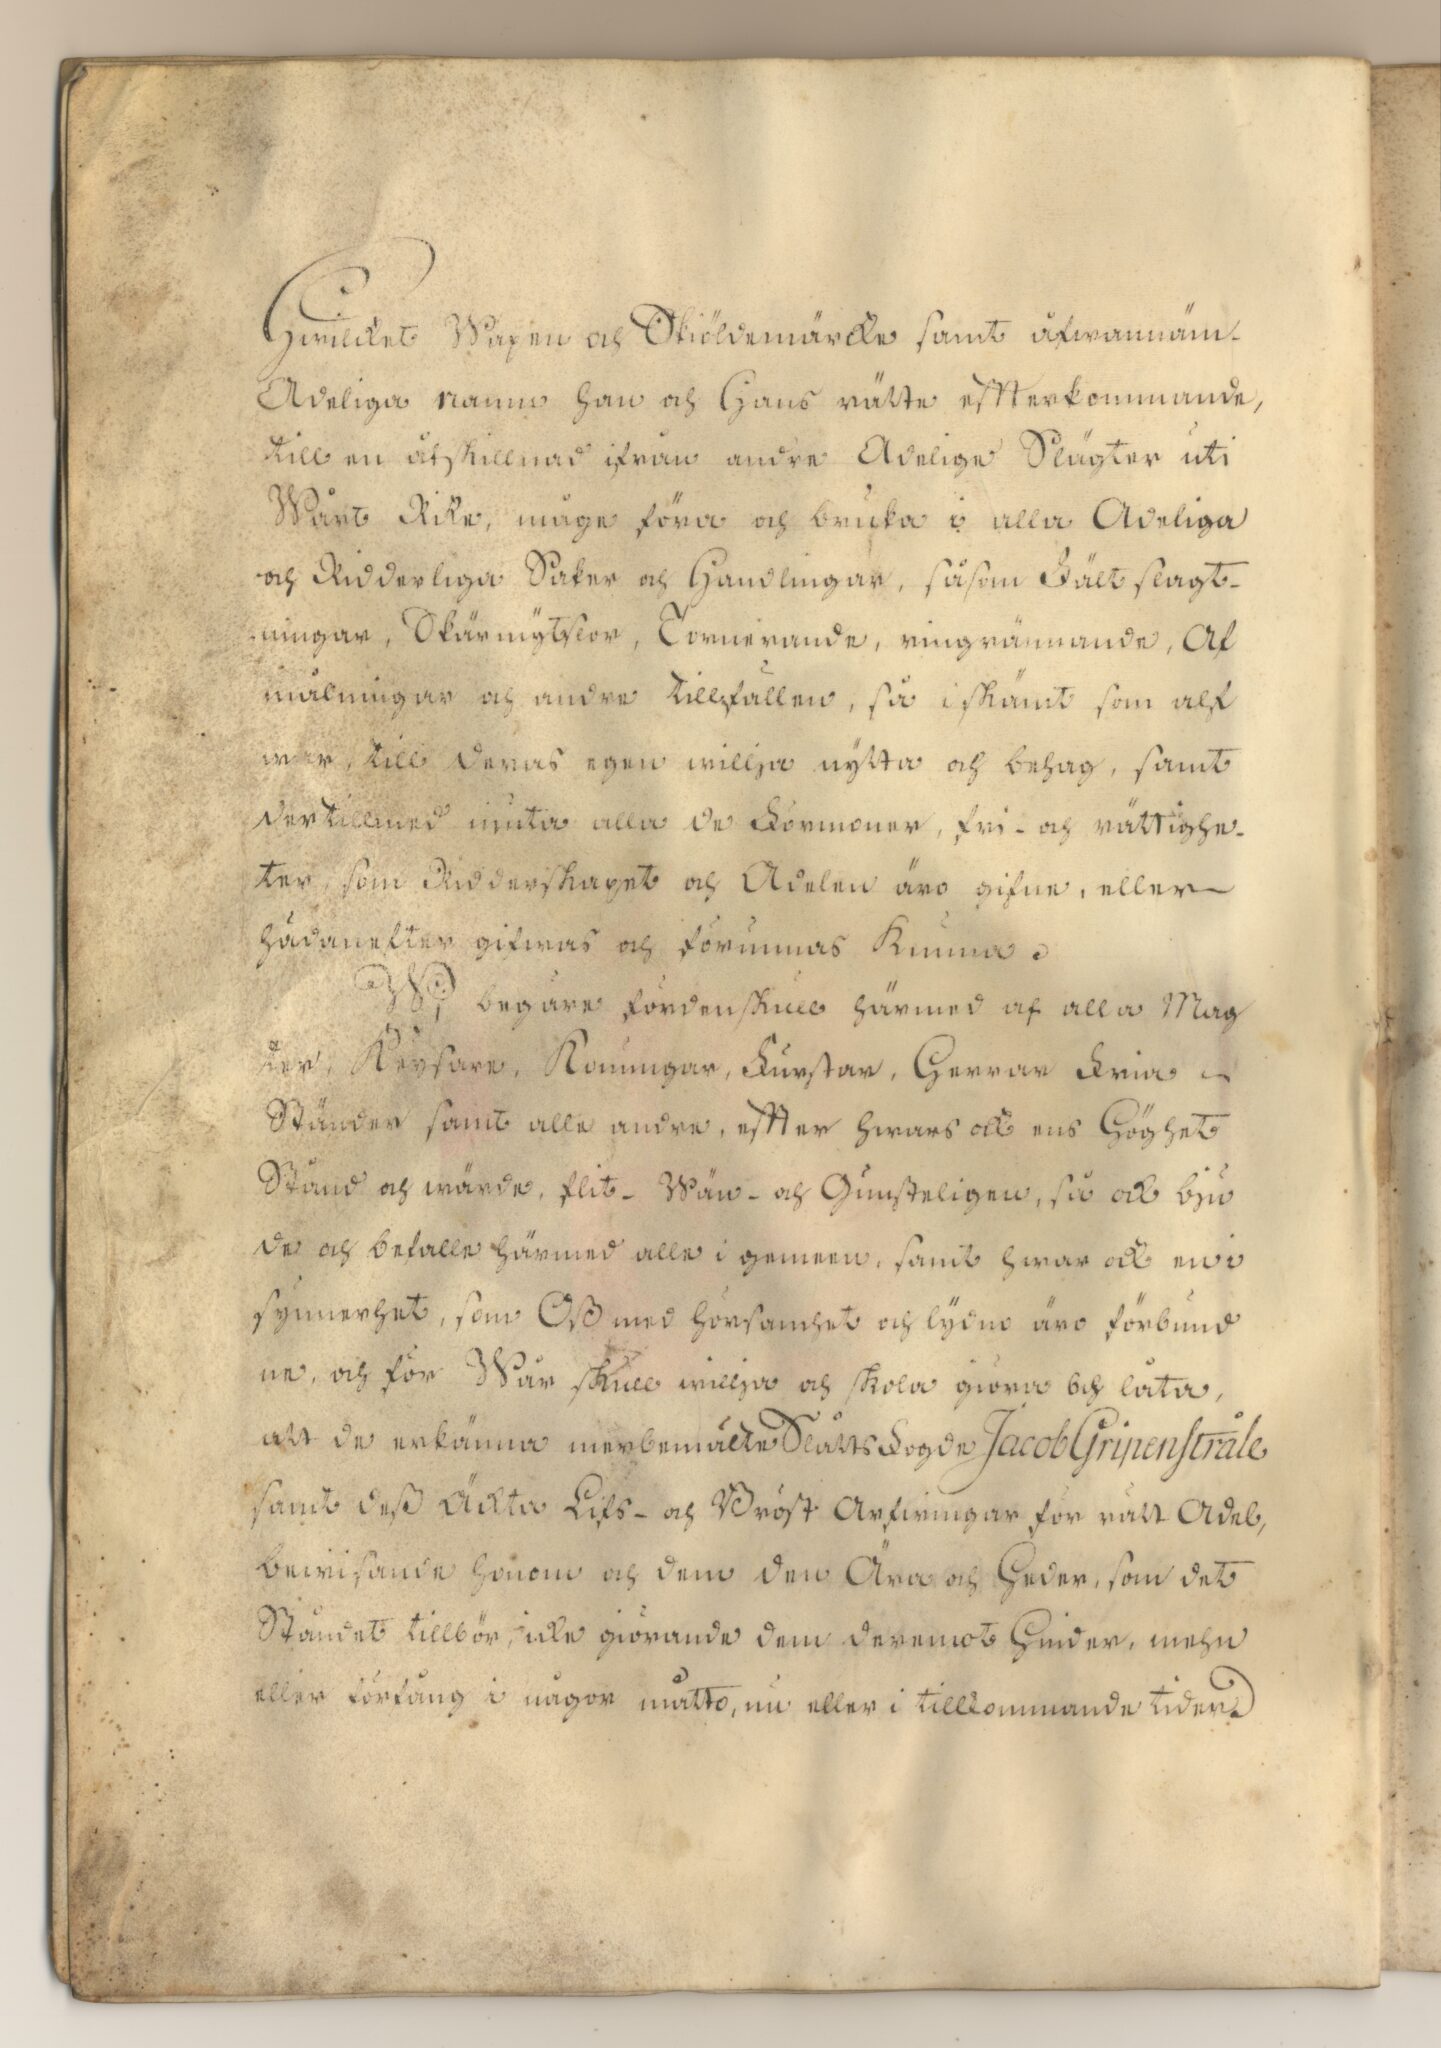 Hwilcket Wapen och Skiöldemärcke samt åfwannäm-
Adeliga namn han och Hans rätte effterkommande,
till en åtskillnad ifrån andre Adelige Slägter uti
Wårt Rike, måge föra och bruka i alla Adeliga
och Ridderliga Saker och Handlingar, såsom Fält slagt-
ningar, Skärmytslor, Tornerande, ringrännande, Af
målningar och andre tillfällen, så i skämt som alf
war, till deras egen willja nytta och behag, samt
dertillmed niuta alla de Förmoner, fri- och rättighe-
ter, som Ridderskapet och Adelen äro gifne, eller
hädanefter gifwas och förunnas Kunna.
Wi begäre fördenskull härmed af alla Mag
ter, Keysare, Konungar, Furstar, Herrar Fria
Ständer samt alle andre, effter hwars ock ens Höghet
Stånd och wärde, flit- Wän- och Gunsteligen, så ock bju
de och befalle härmed alle i gemeen, samt hwar ock en i
synnerhet, som Oß med hörsamhet och lydno äro förbund
ne, och för Wår skull willja och skola giöra och låta,
att de erkänna merbemälte Slåtts Fogde Jacob Gripenstråle
samt deß Äckta Lifs- och Bröst Arfwingar för rätt Adel,
bewisande honom och dem den Ära och Heder, som det
Ståndet tillhör, icke giörande dem deremot Hinder, mehn
eller förfång i någor måtto, nu eller i tillkommande tider.